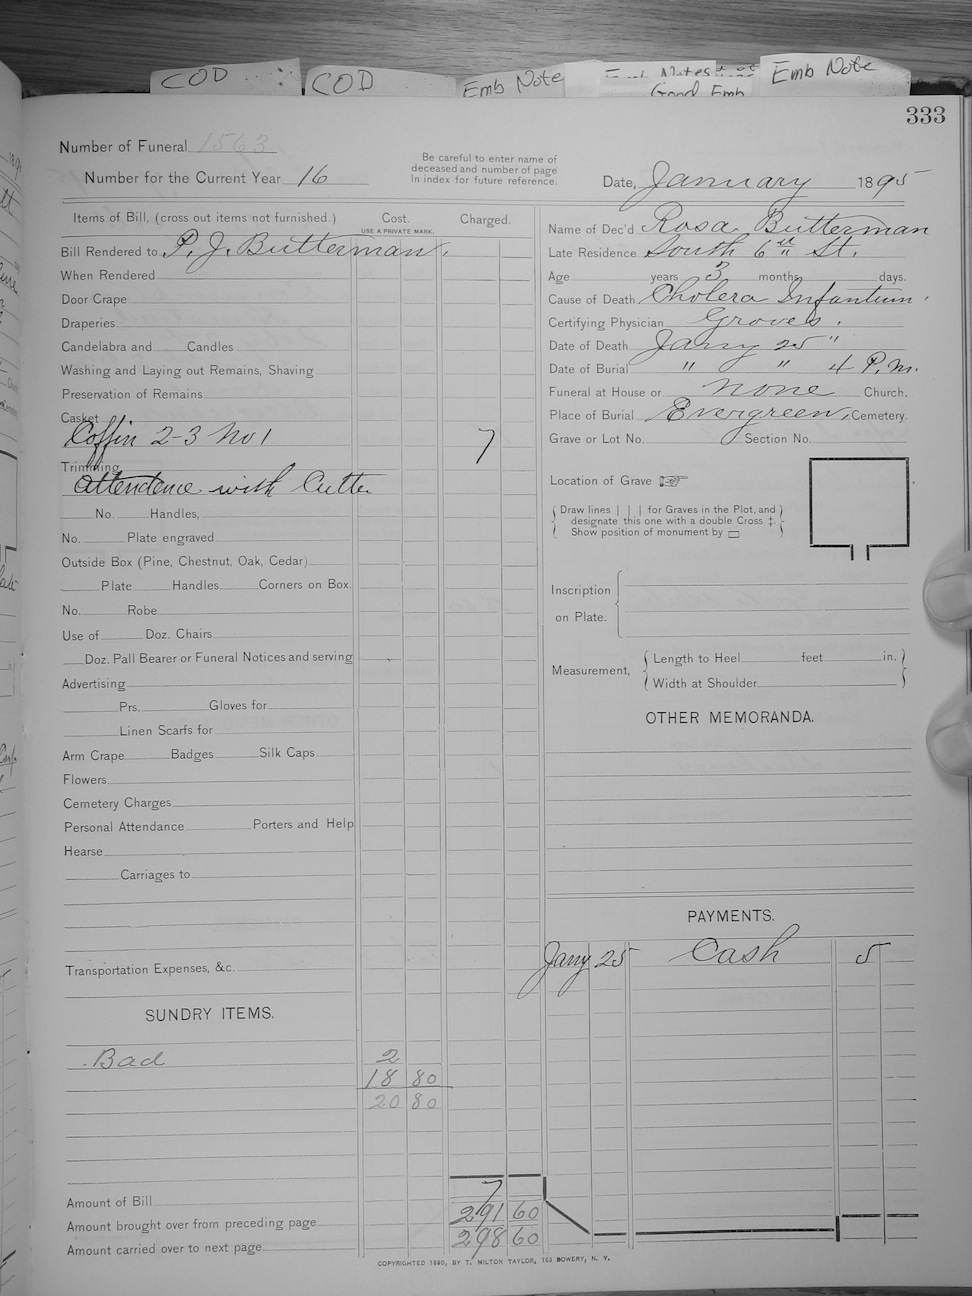 COD
COD
Emb Note
Good Emb
Emb Note
333
Number of Funeral 1563
Number for the Current Year 16
Be careful to enter name of
deceased and number of page
in index for future reference.
Date, January 1895
Items of Bill, (cross out items not furnished.) Cost. Charged.
USE A PRIVATE MARK.
Bill Rendered to P. J. Butterman.
When Rendered
Door Crape
Draperies
Candelabra and Candles
Washing and Laying out Remains, Shaving
Preservation of Remains
Casket
Coffin 2-3 No 1 7
Trimming
Attendence with Cutter
No. Handles,
No. Plate engraved
Outside Box (Pine, Chestnut, Oak, Cedar)
Plate Handles Corners on Box.
No. Robe
Use of Doz. Chairs
Doz. Pall Bearer or Funeral Notices and serving
Advertising
Prs. Gloves for
Linen Scarfs for
Arm Crape Badges Silk Caps
Flowers
Cemetery Charges
Personal Attendance Porters and Help
Hearse
Carriages to
Transportation Expenses, &c.
SUNDRY ITEMS.
Bad 2
18 80
20 80
Amount of Bill 7
Amount brought over from preceding page 291 60
Amount carried over to next page 298 60
Name of Dec'd Rosa Butterman
Late Residence South 6th St.
Age years 3 months days.
Cause of Death Cholera Infantum.
Certifying Physician Groves.
Date of Death Jany 25 "
Date of Burial " " 4 P.M.
Funeral at House or none Church.
Place of Burial Evergreen, Cemetery.
Grave or Lot No. Section No.
Location of Grave
Draw lines | | | for Graves in the Plot, and
designate this one with a double Cross ‡.
Show position of monument by ▭
Inscription
on Plate.
Measurement,
Length to Heel feet in.
Width at Shoulder
OTHER MEMORANDA.
PAYMENTS.
Jany 25 Cash 5
COPYRIGHTED 1890, BY T. MILTON TAYLOR, 163 BOWERY, N. Y.